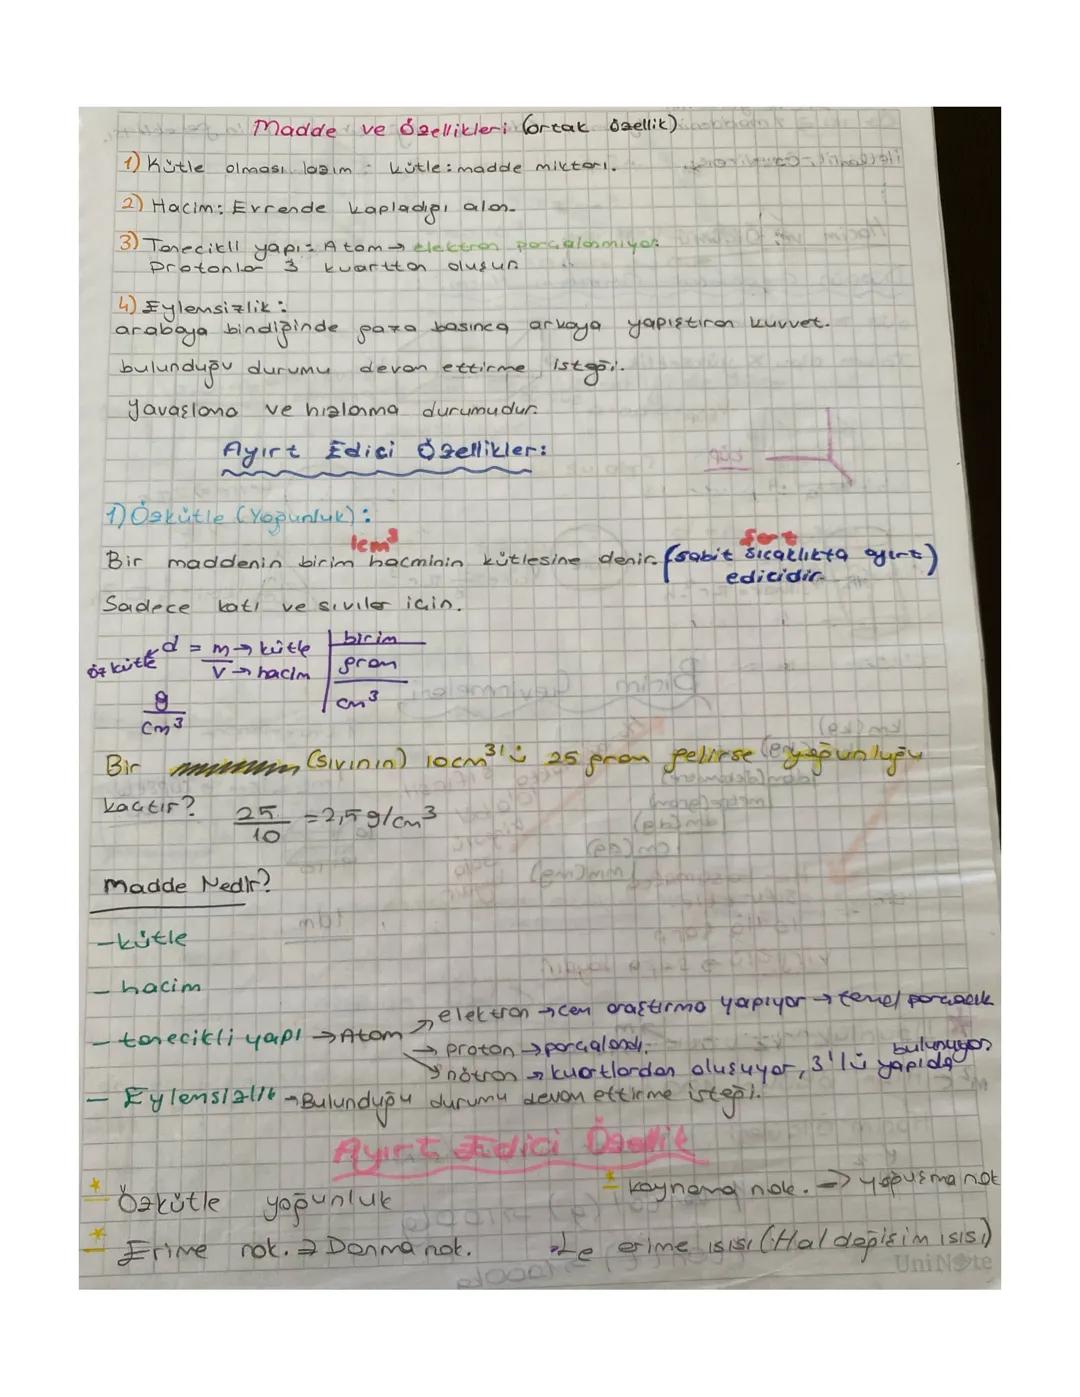 Madde ve Özellikleri (ortak özellik)
1) Kütle olması lazım - kütle: madde miktarı.
2) Hacim: Evrende kapladığı alan.
3) Tanecikli yapı: Atom → elektron parçalanmıyor.
Protonlar 3 kuarttan oluşur
4) Eylemsizlik:
arabaya bindiğinde gaza basınca arkaya yapıştıran kuvvet.
bulunduğu durumu devam ettirme isteği.
Yavaşlama ve hızlanma durumudur.
Ayırt Edici Özellikler:
1) Özkütle (Yoğunluk):
1cm³ şart
Bir maddenin birim hacminin kütlesine denir. (sabit sıcaklıkta ayırt)
edicidir.
Sadece katı ve sıvılar için.
özkütle d = m → kütle birim
V → hacim gram
g cm³
cm³
Bir (sıvının) 10cm³'ü 25 gram gelirse yoğunluğu
kaçtır? 25 = 2,5 g/cm³
10
Madde Nedir?
- kütle
- hacim
elektron → cern araştırma yapıyor → temel parçacık
- tanecikli yapı → Atom → proton → parçalandı. bulunuyor
nötron → kuartlardan oluşuyor, 3'lü yapıda
- Eylemsizlik → Bulunduğu durumu devam ettirme isteği.
Ayırt Edici Özellik
* Özkütle yoğunluk * kaynama nok. → yoğuşma nok
* Erime nok. → Donma nok. Le erime ısısı (Hal değişim ısısı)
UniNote